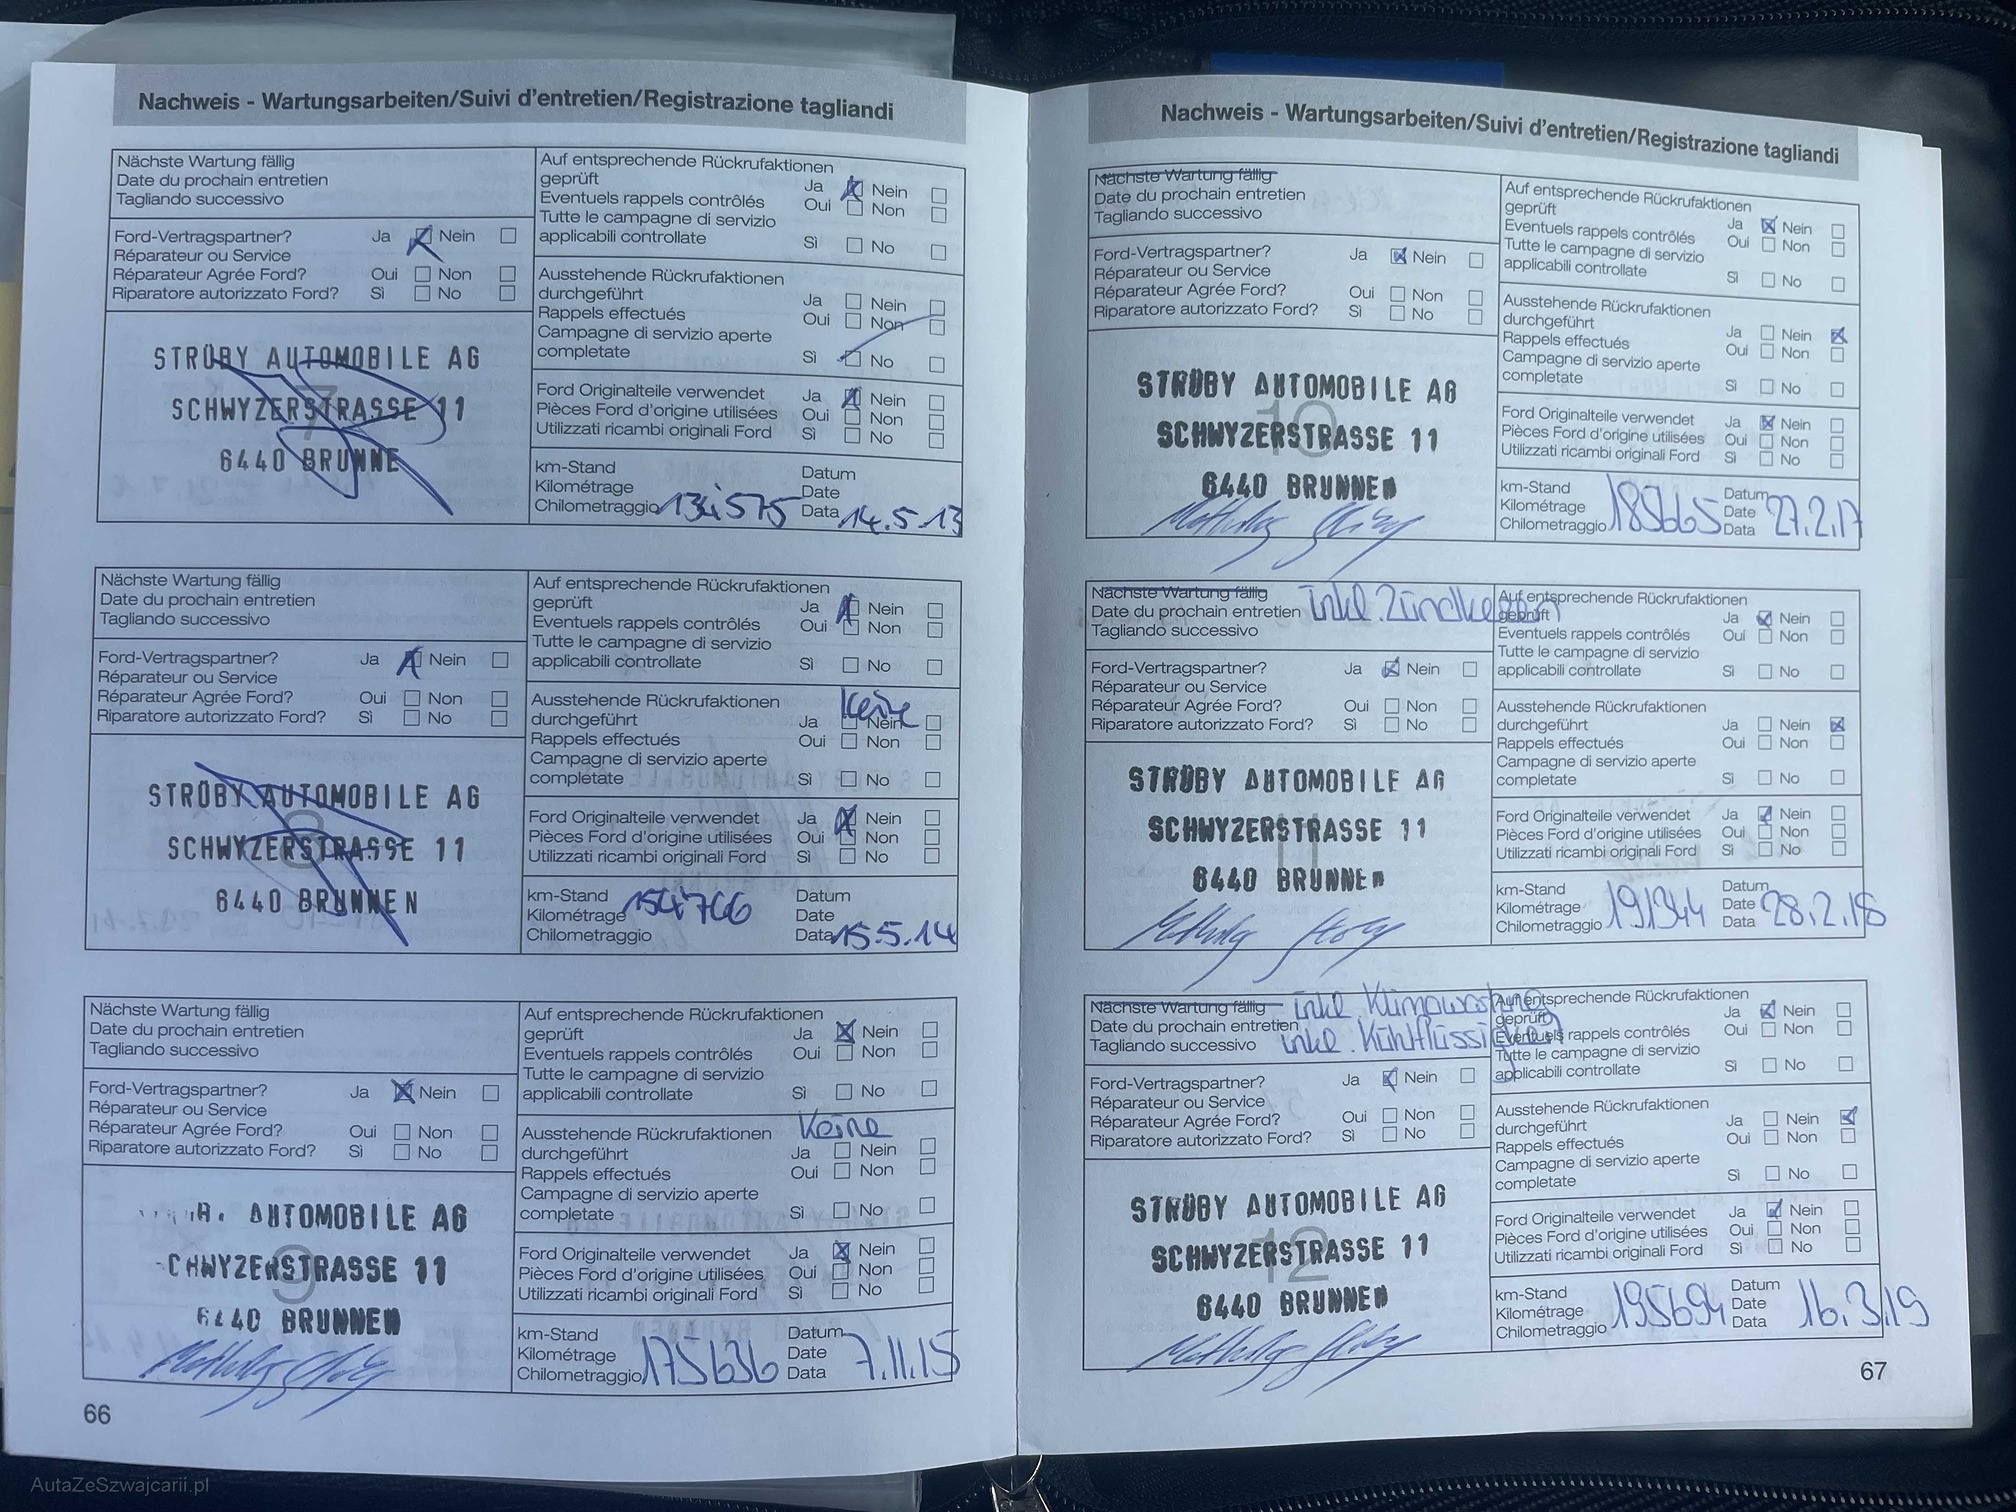 Nachweis - Wartungsarbeiten/Suivi d'entretien/Registrazione tagliandi
Nächste Wartung fällig
Date du prochain entretien
Tagliando successivo
Ford-Vertragspartner? Ja Nein
Réparateur ou Service
Réparateur Agrée Ford? Oui Non
Riparatore autorizzato Ford? Sì No
STRÜBY AUTOMOBILE AG
7
SCHWYZERSTRASSE 11
6440 BRUNNE
Auf entsprechende Rückrufaktionen
geprüft Ja Nein
Eventuels rappels contrôlés Oui Non
Tutte le campagne di servizio
applicabili controllate Sì No
Ausstehende Rückrufaktionen
durchgeführt Ja Nein
Rappels effectués Oui Non
Campagne di servizio aperte
completate Sì No
Ford Originalteile verwendet Ja Nein
Pièces Ford d'origine utilisées Oui Non
Utilizzati ricambi originali Ford Sì No
km-Stand Datum
Kilométrage Date
Chilometraggio 134'575 Data 14.5.13
Nächste Wartung fällig
Date du prochain entretien
Tagliando successivo
Ford-Vertragspartner? Ja Nein
Réparateur ou Service
Réparateur Agrée Ford? Oui Non
Riparatore autorizzato Ford? Sì No
STRÜBY AUTOMOBILE AG
8
SCHWYZERSTRASSE 11
6440 BRUNNEN
Auf entsprechende Rückrufaktionen
geprüft Ja Nein
Eventuels rappels contrôlés Oui Non
Tutte le campagne di servizio
applicabili controllate Sì No
Ausstehende Rückrufaktionen Keine
durchgeführt Ja Nein
Rappels effectués Oui Non
Campagne di servizio aperte
completate Sì No
Ford Originalteile verwendet Ja Nein
Pièces Ford d'origine utilisées Oui Non
Utilizzati ricambi originali Ford Sì No
km-Stand 154'766 Datum
Kilométrage Date
Chilometraggio Data 15.5.14
Nächste Wartung fällig
Date du prochain entretien
Tagliando successivo
Ford-Vertragspartner? Ja Nein
Réparateur ou Service
Réparateur Agrée Ford? Oui Non
Riparatore autorizzato Ford? Sì No
AUTOMOBILE AG
9
CHWYZERSTRASSE 11
6440 BRUNNEN
Auf entsprechende Rückrufaktionen
geprüft Ja Nein
Eventuels rappels contrôlés Oui Non
Tutte le campagne di servizio
applicabili controllate Sì No
Ausstehende Rückrufaktionen Keine
durchgeführt Ja Nein
Rappels effectués Oui Non
Campagne di servizio aperte
completate Sì No
Ford Originalteile verwendet Ja Nein
Pièces Ford d'origine utilisées Oui Non
Utilizzati ricambi originali Ford Sì No
km-Stand Datum
Kilométrage Date
Chilometraggio 175636 Data 7.11.15
66
Nachweis - Wartungsarbeiten/Suivi d'entretien/Registrazione tagliandi
Nächste Wartung fällig
Date du prochain entretien
Tagliando successivo
Ford-Vertragspartner? Ja Nein
Réparateur ou Service
Réparateur Agrée Ford? Oui Non
Riparatore autorizzato Ford? Sì No
STRÜBY AUTOMOBILE AG
10
SCHWYZERSTRASSE 11
6440 BRUNNEN
Auf entsprechende Rückrufaktionen
geprüft Ja Nein
Eventuels rappels contrôlés Oui Non
Tutte le campagne di servizio
applicabili controllate Sì No
Ausstehende Rückrufaktionen
durchgeführt Ja Nein
Rappels effectués Oui Non
Campagne di servizio aperte
completate Sì No
Ford Originalteile verwendet Ja Nein
Pièces Ford d'origine utilisées Oui Non
Utilizzati ricambi originali Ford Sì No
km-Stand Datum
Kilométrage Date
Chilometraggio 185665 Data 27.2.17
Nächste Wartung fällig
Date du prochain entretien inkl. Zündkerzen
Tagliando successivo
Ford-Vertragspartner? Ja Nein
Réparateur ou Service
Réparateur Agrée Ford? Oui Non
Riparatore autorizzato Ford? Sì No
STRÜBY AUTOMOBILE AG
11
SCHWYZERSTRASSE 11
6440 BRUNNEN
Auf entsprechende Rückrufaktionen
geprüft Ja Nein
Eventuels rappels contrôlés Oui Non
Tutte le campagne di servizio
applicabili controllate Sì No
Ausstehende Rückrufaktionen
durchgeführt Ja Nein
Rappels effectués Oui Non
Campagne di servizio aperte
completate Sì No
Ford Originalteile verwendet Ja Nein
Pièces Ford d'origine utilisées Oui Non
Utilizzati ricambi originali Ford Sì No
km-Stand Datum
Kilométrage Date
Chilometraggio 191344 Data 28.2.18
Nächste Wartung fällig inkl. Klimawartung
Date du prochain entretien
Tagliando successivo inkl. Kühlflüssigkeit
Ford-Vertragspartner? Ja Nein
Réparateur ou Service
Réparateur Agrée Ford? Oui Non
Riparatore autorizzato Ford? Sì No
STRÜBY AUTOMOBILE AG
12
SCHWYZERSTRASSE 11
6440 BRUNNEN
Auf entsprechende Rückrufaktionen
geprüft Ja Nein
Eventuels rappels contrôlés Oui Non
Tutte le campagne di servizio
applicabili controllate Sì No
Ausstehende Rückrufaktionen
durchgeführt Ja Nein
Rappels effectués Oui Non
Campagne di servizio aperte
completate Sì No
Ford Originalteile verwendet Ja Nein
Pièces Ford d'origine utilisées Oui Non
Utilizzati ricambi originali Ford Sì No
km-Stand Datum
Kilométrage Date
Chilometraggio 195694 Data 16.3.19
67
AutaZeSzwajcarii.pl